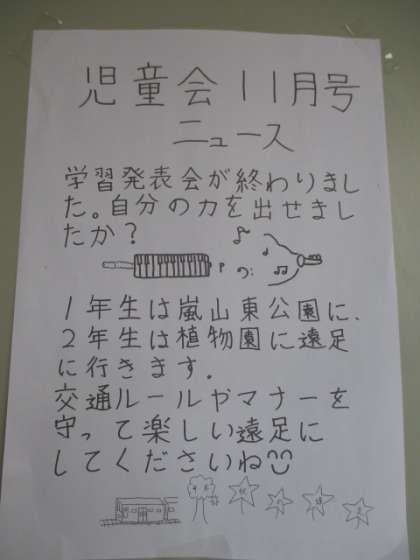 児童会11月号
ニュース
学習発表会が終わりまし
た。自分の力を出せまし
たか？
1年生は嵐山東公園に、
2年生は植物園に遠足
に行きます。
交通ルールやマナーを
守って楽しい遠足に
してくださいね